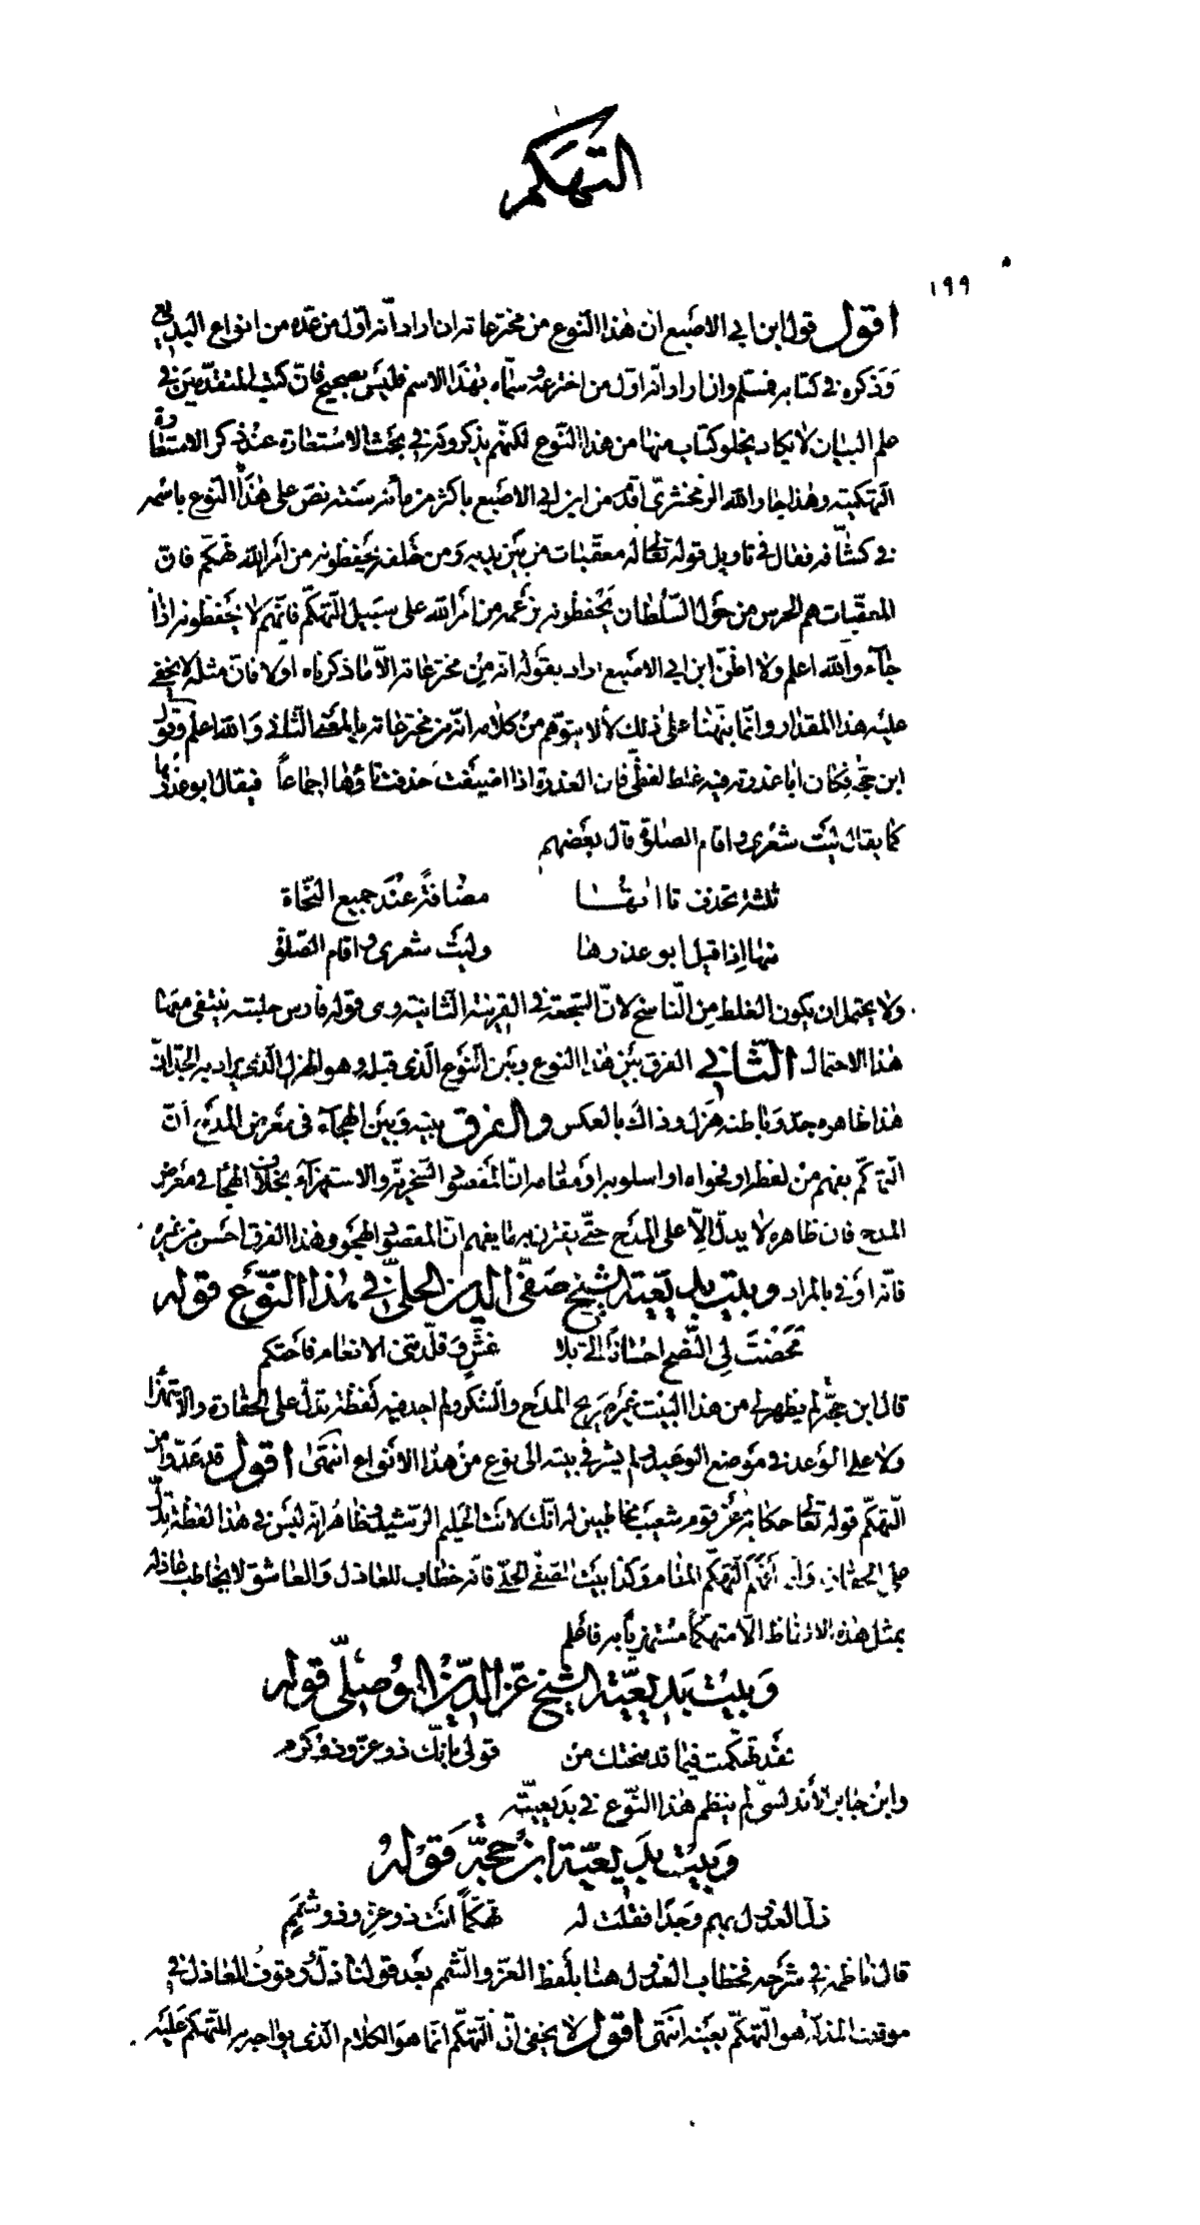 التهكم
١٩٩
اقول قول ابن ابي الاصبع ان هذا النوع من مخترعاته ان اراد انه اول من عده من انواع البديع
وذكره في كتابه فمسلم وان اراد انه اول من اخترعه وسماه بهذا الاسم فليس بصحيح فان كتب المتقدمين في
علم البيان لا يكاد يخلو كتاب منها من هذا النوع لكنهم يذكرونه في بحث الاستعارة عند ذكر الاستعارة
التهكمية وهذا جار الله الزمخشري اقدم من ابن ابي الاصبع باكثر من مائة سنة نص على هذا النوع باسمه
في كشافه فقال في تاويل قوله تعالى له معقبات من بين يديه ومن خلفه يحفظونه من امر الله تهكم فان
المعقبات هم الحرس من حول السلطان يحفظونه بزعمه من امر الله على سبيل التهكم فانهم لا يحفظونه اذا
جاء والله اعلم ولا اظن ابن ابي الاصبع اراد بقوله انه من مخترعاته الا ما ذكرناه اولا فان مثله لا يخفى
عليه هذا المقدار وانما نبهنا على ذلك لئلا يتوهم من كلامه انه من مخترعاته بالمعنى الثاني والله اعلم وقول
ابن حجة فكان ابا عذرته فيه غلط لفظي فان العذرة اذا اضيفت حذفت تاؤها اجماعاً فيقال ابو عذرها
كما يقال ليت شعري واقام الصلوة قال بعضهم
ثلثة تحذف تا اتها مضافة عند جميع النحاة
منها اذا قيل ابو عذرها وليت شعري واقام الصلوة
ولا يحتمل ان يكون الغلط من الناسخ لان السجعة في القرينة الثانية وهي قوله فارس حلبته ينتفي معها
هذا الاحتمال الثاني الفرق بين هذا النوع وبين النوع الذي قبله وهو الهزل الذي يراد به الجد ان
هذا ظاهره جد وباطنه هزل وذاك بالعكس والفرق بينه وبين الهجاء في معرض المدح ان
التهكم يفهم من لفظه او فحواه او اسلوبه او مقامه ان المقصود السخرية والاستهزاء بخلاف الهجا في معرض
المدح فان ظاهره لا يدل الا على المدح حتى يقترن به ما يفهم ان المقصود الهجو وهذا الفرق احسن من غيره
فانه اوفى بالمراد وبيت بديعية الشيخ صفي الدين الحلي في هذا النوع قوله
محضت لي النصح احسانا الي بلا غش وقلدتني الانعام فاحتكم
قال ابن حجة لم يظهر لي من هذا البيت غير صريح المدح والشكر ولم اجد فيه لفظة تدل على الحقارة والاستهزا
ولا على الوعد في موضع الوعيد ولم يشر في بيته الى نوع من هذا الانواع انتهى اقول قد عدوا من
التهكم قوله تعالى حكاية عن قوم شعيب مخاطبين له انك لانت الحليم الرشيد وظاهر انه ليس في هذا لفظة تدل
على الحقارة وانما افهم التهكم المقام وكذا بيت الصفي الحلي فانه خطاب للعاذل والعاشق لا يخاطب عاذله
بمثل هذه الالفاظ الا متهكماً مستهزياً به فاعلم
وبيت بديعية الشيخ عز الدين الموصلي قوله
لقد تهكمت فيما قد منحتك من قولي بانك ذو عز وذو كرم
وابن جابر الاندلسي لم ينظم هذا النوع في بديعيته
وبيت بديعية ابن حجة قوله
ذل العذول بهم وجدا فقلت له تهكماً انت ذو عز وذو شمم
قال ناظمه في شرحه فخطاب العذول هنا بلفظ العز والشمم بعد قولنا ذل ووقوف العاذل في
موقف المذلة هو التهكم بعينه انتهى اقول لا يخفى ان التهكم انما هو الكلام الذي يواجه به المتهكم عليه